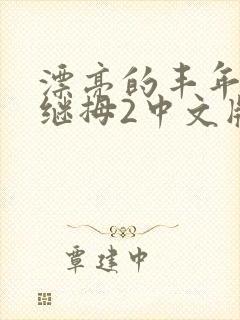 漂亮的丰年
继拇2中文版
覃建中